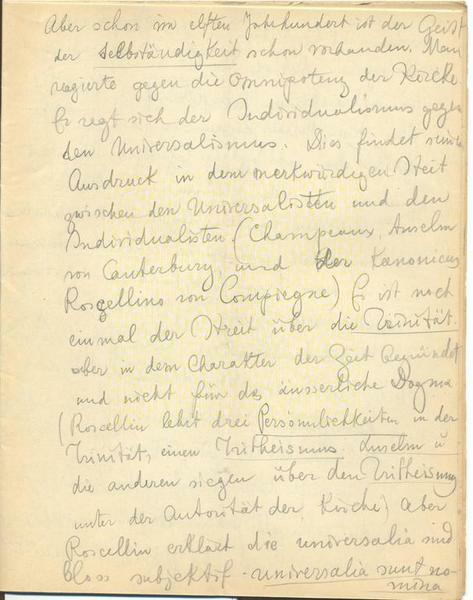 Aber schon im elften Jahrhundert ist der Geist
der Selbständigkeit schon vorhanden. Man
reagierte gegen die Omnipotenz der Kirche.
Es regt sich der Individualismus gegen
den Universalismus. Dies findet seinen
Ausdruck in dem merkwürdigen Streit
zwischen den Universalisten und den
Individualisten (Champeaux, Anselm
von Canterbury, und der Kanonicus
Roscellino von Compiegne) Es ist noch
einmal der Streit über die Trinität.
aber in dem Charakter der Zeit begründet
und nicht für das äusserliche Dogma
(Roscellin lehrt drei Persönlichkeiten in der
Trinität, einen Tritheismus. Anselm u
die anderen siegen über den Tritheismus
unter der Autorität der Kirche) Aber
Roscellin erklärt die universalia sind
bloss subjektif - universalia sunt no-
mina